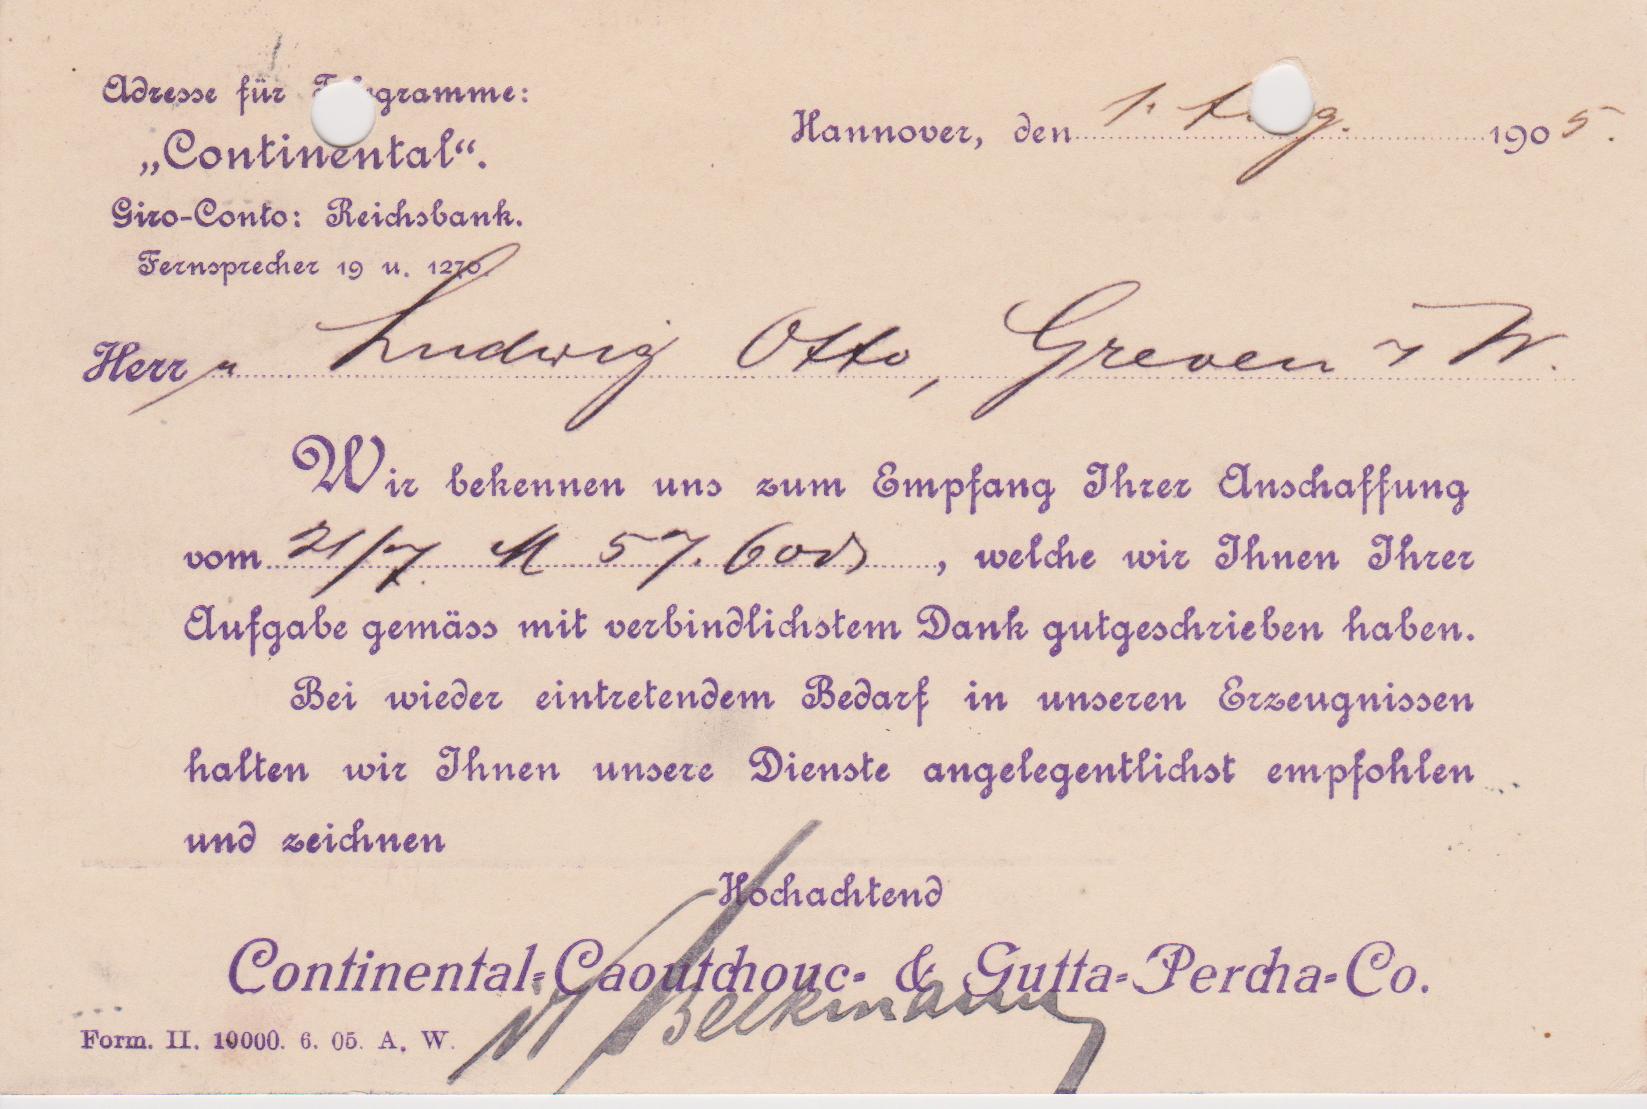 Adresse für Telegramme:
„Continental“.
Giro-Conto: Reichsbank.
Fernsprecher 19 u. 1270.
Hannover, den 1. Aug. 1905.
Herrn Ludwig Otto, Greven i/W.
Wir bekennen uns zum Empfang Ihrer Anschaffung
vom 21/7. M 57.60 , welche wir Ihnen Ihrer
Aufgabe gemäss mit verbindlichstem Dank gutgeschrieben haben.
Bei wieder eintretendem Bedarf in unseren Erzeugnissen
halten wir Ihnen unsere Dienste angelegentlichst empfohlen
und zeichnen
Hochachtend
Continental-Caoutchouc- & Gutta-Percha-Co.
Form. II. 10000. 6. 05. A. W.